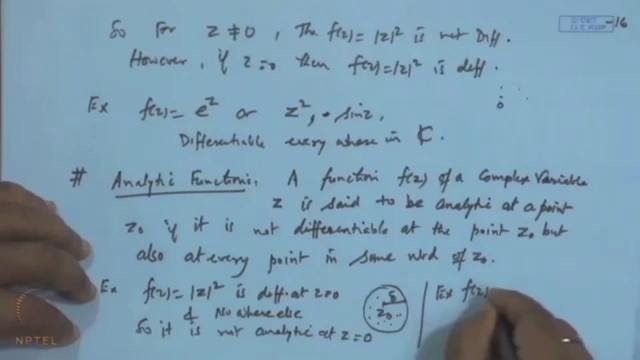 So For z ≠ 0, The f(z) = |z|² is not Diff.
However, if z = 0 then f(z) = |z|² is diff.
0
Ex f(z) = e^z or z², sin z,
Differentiable every where in ℂ.
# Analytic Function: A function f(z) of a Complex Variable
z is said to be analytic at a point
z₀ if it is not differentiable at the point z₀ but
also at every point in some nbd of z₀.
Ex f(z) = |z|² is diff. at z=0
& No where else
So it is not analytic at z=0
z₀
Ex f(z)
NPTEL